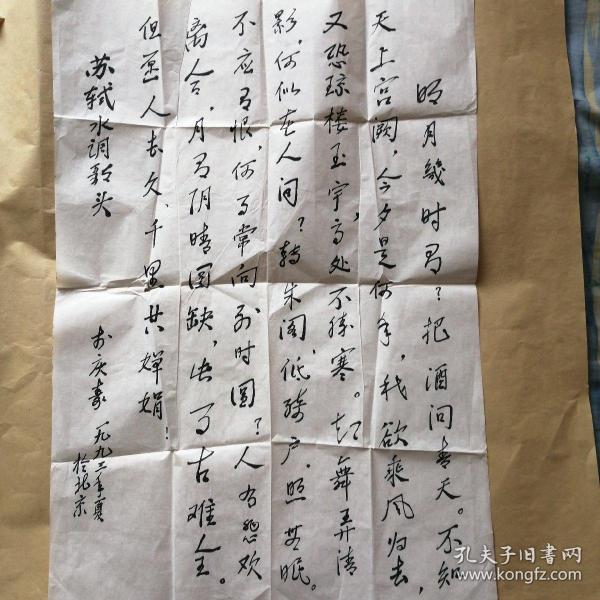 明月几时有？把酒问青天。不知
天上宫阙，今夕是何年，我欲乘风归去，
又恐琼楼玉宇，高处不胜寒。起舞弄清
影，何似在人间？转朱阁，低绮户，照无眠。
不应有恨，何事常向别时圆？人有悲欢
离合，月有阴晴圆缺，此事古难全。
但愿人长久，千里共婵娟！
苏轼水调歌头
一九九二年夏
于北京
孔夫子旧书网
www.kongfz.com